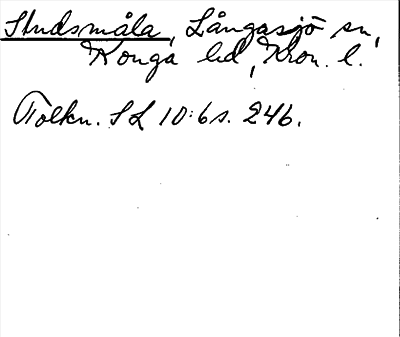 Studsmåla, Långasjö sn,
Konga hd, Kron. l.
Tolkn. SL 10:6 s. 246.